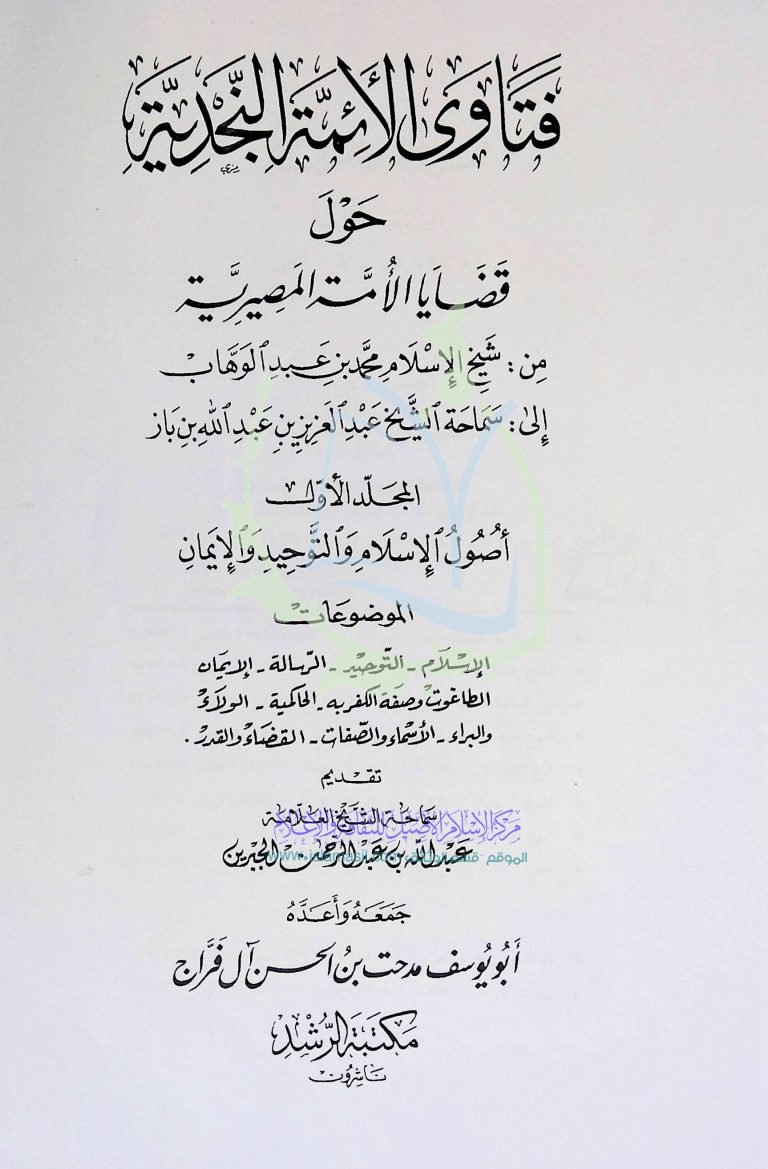 فَتَاوَى الأَئِمَّة النَّجْدِيَّةِ
حَوْلَ
قَضَايَا الأُمَّة المَصِيرِيَّة
مِن: شَيْخِ الإِسْلَامِ مُحَمَّد بْنِ عَبدِ الوَهَّاب
إِلَى: سَمَاحَة الشَّيْخ عَبْدِ العَزِيزِ بْنِ عَبْدِ اللهِ بْنِ بَاز
المجَلّد الأوّل
أُصُولُ الإِسْلَامِ وَالتَّوحِيدِ وَالإِيمَانِ
الموضوعَات
الإسْلَام - التّوحيْد - الرّسالة - الإيمَان
الطاغوت وصفة الكفر به - الحاكمية - الولاءُ
والبراء - الأسْماء والصّفات - القضَاءُ والقدر.
تقديم
سماحة الشَّيْخ العلّامة
مركز الإسلام الأصيل للثقافة والإعلام
عَبْد اللّه بن عَبْد الرّحمٰن الجبرين
الموقع - قسم الوثائق - www.islamasil.com
جَمَعَهُ وَأَعَدَّهُ
أَبُو يُوسف مدحت بنُ الحسن آل فَرَّاج
مَكتَبَة الرُّشْدِ
نَاشِرُون